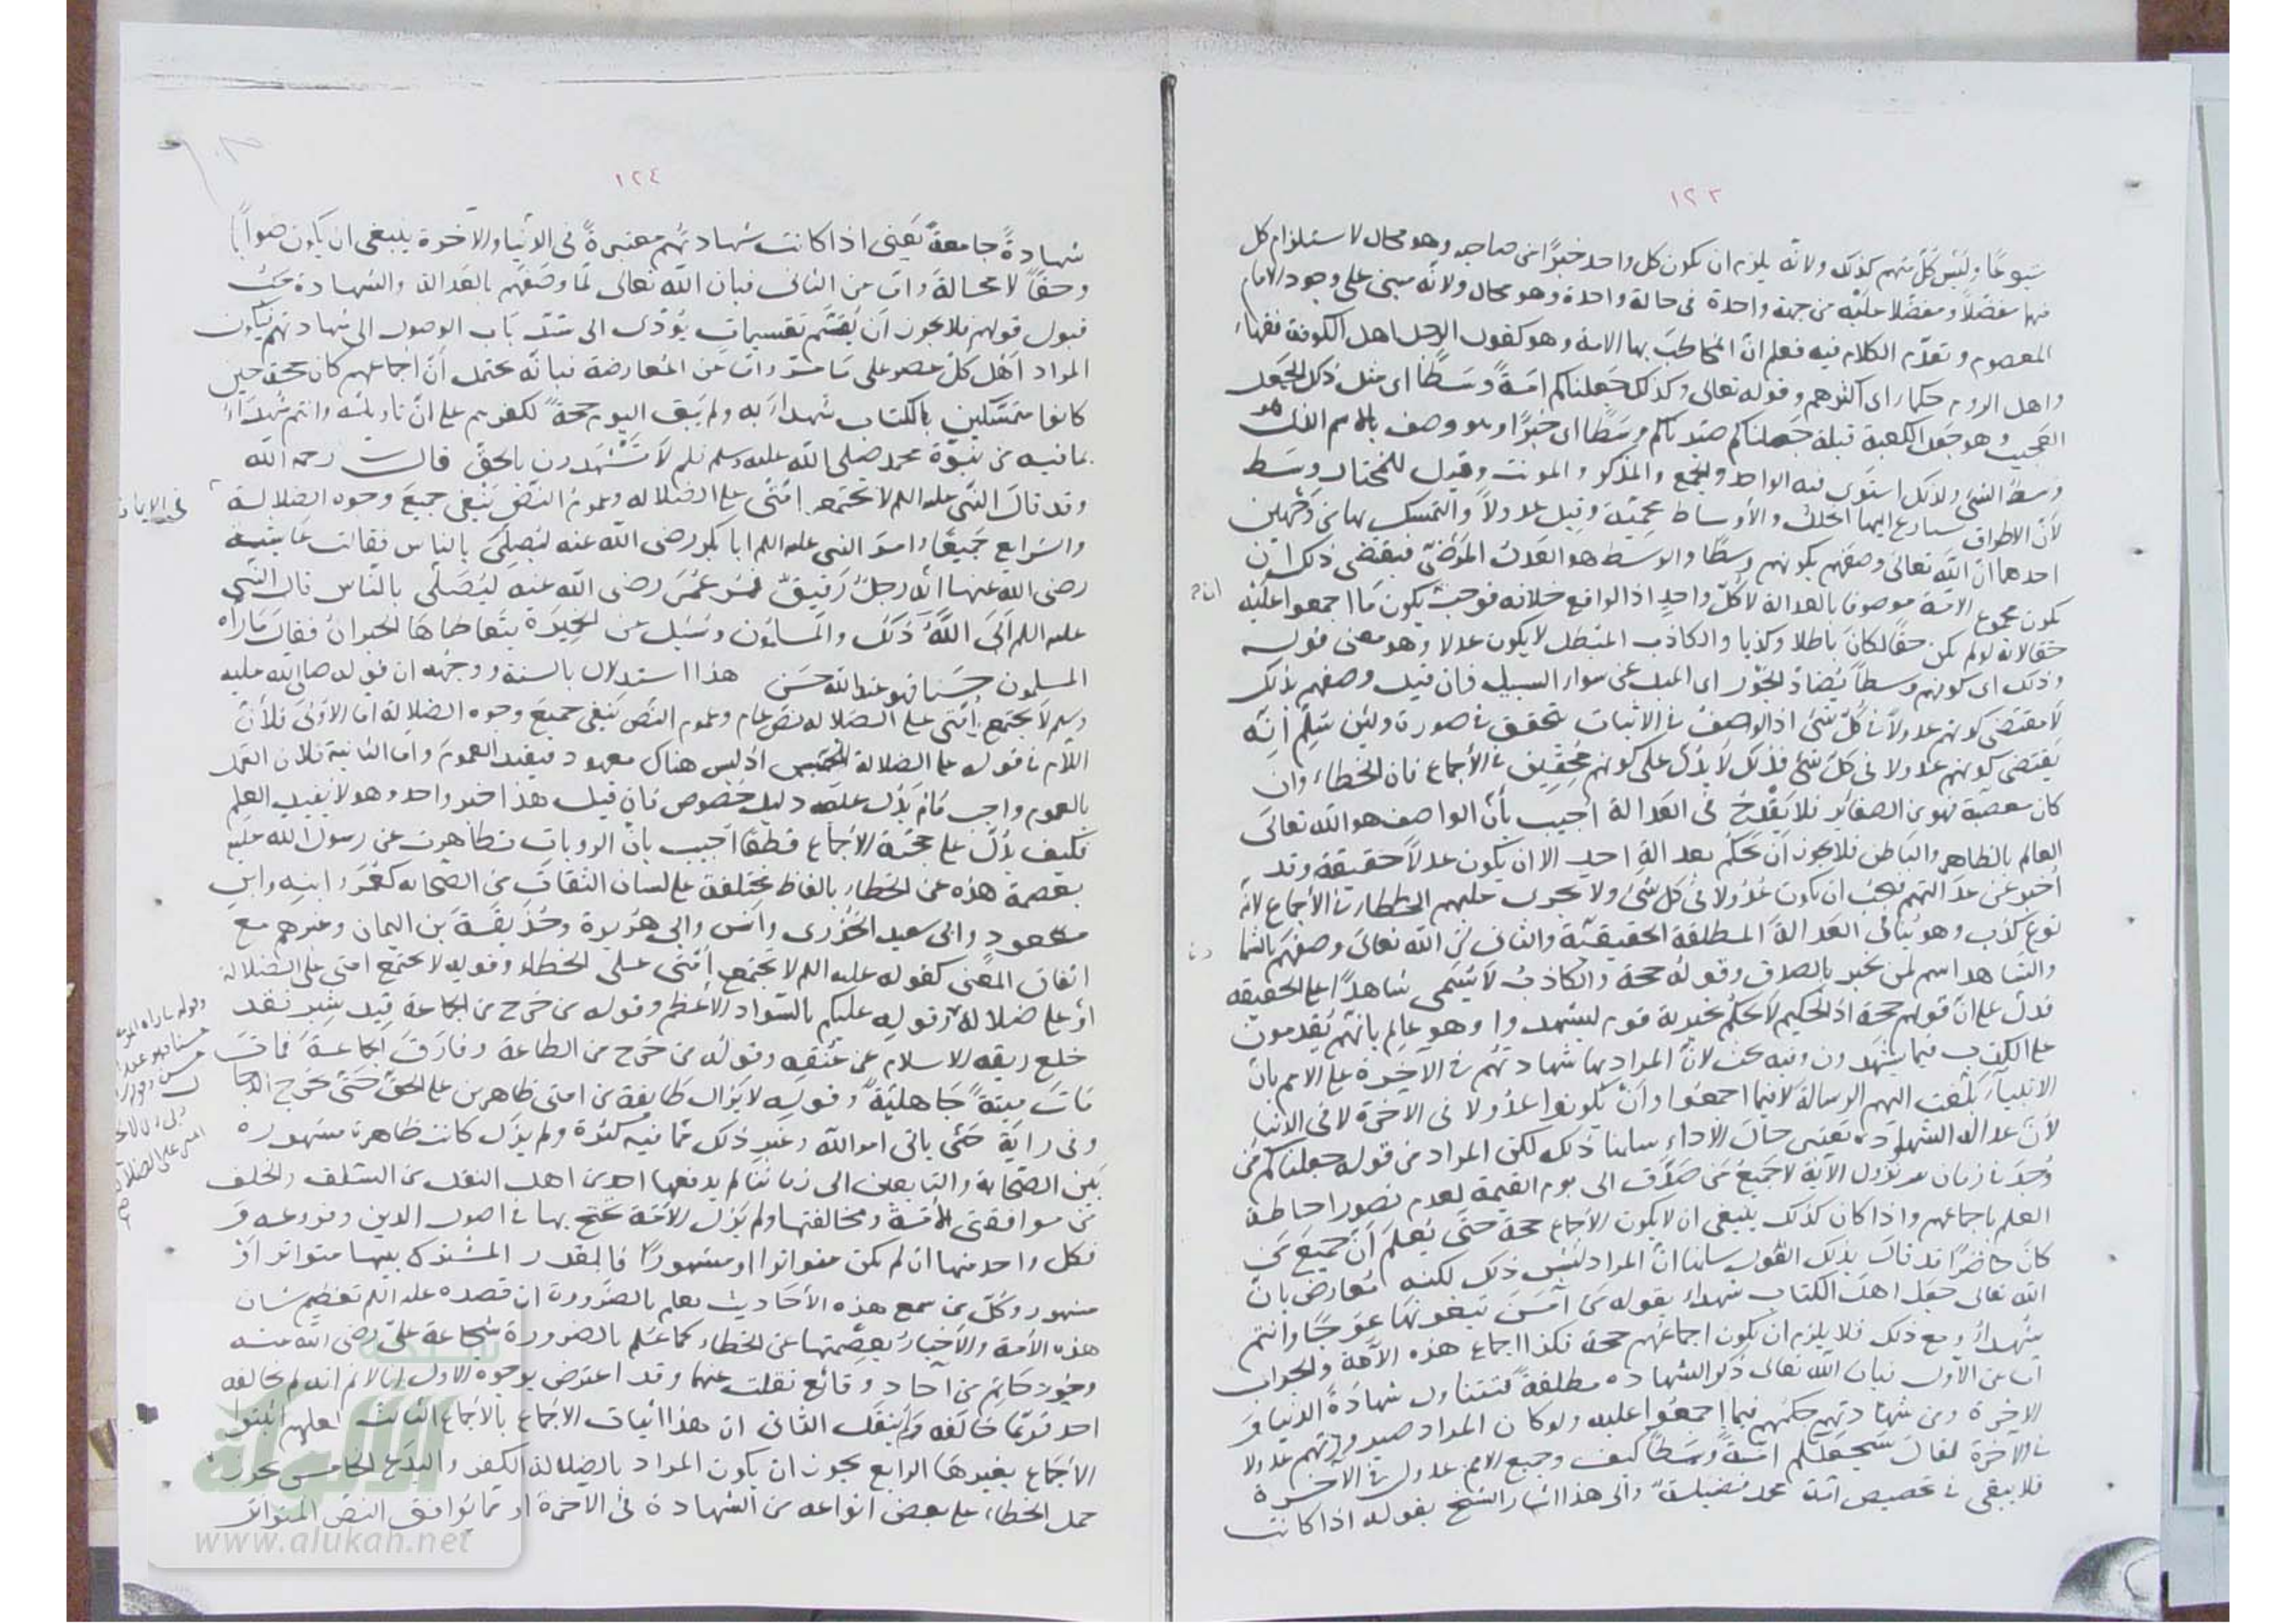 ١٢٣
متبوعًا وليس كلّ منهم كذلك ولانه يلزم ان يكون كل واحد خيرًا من صاحبه وهو محال لاستلزام كل
منها مفضلًا ومفضلا عليه من جهة واحدة في حالة واحدة وهو محال ولانه مبنى على وجود الامام
المعصوم وتقدّم الكلام فيه فعلم انّ المخاطب بها الامة وهو كقول الرجل اهل الكوفة فقهاء
واهل الروم حكماء اى اكثرهم وقوله تعالى وكذلك جعلناكم امّةً وسَطًا اى مثل ذلك الجعل
العجيب وهو جعل الكعبة قبلة جعلناكم وسَطًا اى خيرًا وهو وصف بالاسم الذى هو
وسط الشىء ولذلك استوى فيه الواحد والجمع والمذكر والمونث وقيل للخيار وسط
لأنّ الاطراف يسارع اليها الخلل والأوساط محميّة وقيل عدولًا والتمسك بها من وجهين
احدهما انّ اللّه تعالى وصفهم بكونهم وسطًا والوسط هو العدل المرضىّ فيقتضى ذلك ان
يكون مجموع الامة موصوفا بالعدالة لا كلّ واحدٍ اذ الواقع خلافه فوجب ان يكون ما اجمعوا عليه
حقّا لانه لو لم يكن حقّا لكان باطلا وكذبا والكاذب المبطل لا يكون عدلا وهو معنى قوله
وذلك اى كونهم وسطاً يُضادّ الجَوْر اى الميل عن سواء السبيل فان قيل وصفهم بذلك
لا يقتضى كونهم عدولًا فى كلّ شىء اذ الوصف فى الاثبات يتحقق فى صورة ولئن سُلِّم انّه
يقتضى كونهم عدولا فى كلّ شىء فذلك لا يدُلّ على كونهم مُحِقّين فى الأجماع فان الخطاء وان
كان معصية فهو من الصغائر فلا يَقْدَحُ فى العدالة أجيب بأنّ الواصف هو اللّه تعالى
العالم بالظاهر والباطن فلا يجوز اَنْ يحكم بعدالة احد الا ان يكون عدلًا حقيقة وقد
أخبر عن عدالتهم فيجب ان يكونوا عُدُولا فى كل شىء ولا يجرى عليهم الخطاء فى الأجماع لانّه
نوع كذب وهو يُنافى العدالة المطلقة الحقيقيّة والثانى انّ اللّه تعالى وصفهم بالشهادة
والشاهد اسم لمن يخبر بالصدق وقوله حجة والكاذب لا يُسَمّى شاهدًا على الحقيقة
فدلّ على انّ قولهم حجة اذ الحكيم لا يحكم بخيرية قوم ليشهدوا وهو عالم بانّهم يُقدمون
على الكذب فيما يشهدون وفيه بحث لانّ المراد بها شهادتهم فى الآخرة على الامم بأن
الانبياء بَلّغت اليهم الرسالة لا فيما اجمعوا وأنْ يكونوا عُدُولا فى الآخرة لا فى الدنيا
لأن عدالة الشهود تعتبر حال الأداء سلمنا ذلك لكن المراد من قوله جعلناكم مَن
وُجِدَ فى زمان نزول الآية لا جميعُ مَن صَدّق الى يوم القيمة لعدم تصور احاطة
العلم باجماعهم واذا كان كذلك ينبغى ان لا يكون الأجماع حجة حتى يُعلَم انّ جميع مَن
كان حاضرًا قد قال بذلك القول سلمنا انّ المراد ليس ذلك لكنه مُعارض بانّ
اللّه تعالى جعل اهل الكتاب شهداء بقوله مَن آمن تبغونها عوجًا وانتم
شهداءُ ومع ذلك فلا يلزم ان يكون اجماعهم حجة فكذا اجماع هذه الأمّة والجواب
اما عن الأوّل فبان اللّه تعالى ذكر الشهادة مطلقةً فتتناول شهادة الدنيا و
الآخرة ومن شهادتهم حكمهم فيما اجمعوا عليه ولو كان المراد صيرورتهم عدولا
فى الآخرة لقال سَنجعَلكُم امّةً وسطًا كيف وجميع الامم عدول فى الآخرة
فلا يبقى فى تخصيص امّة محمد فضيلةٌ والى هذا اشار الشيخ بقوله اذا كانت
١٢٤
شهادةً جامعةً يَعنى اذا كانت شهادتُهم معتبرةً فى الدنيا والآخرة ينبغى ان يكون صوابًا
وحقًا لا محالة وامّا عن الثانى فبان اللّه تعالى لمّا وصَفَهم بالعدالة والشهادة وجب
قبول قولهم فلا يجوز اَن يُقَسَّم تقسيماتٍ يُؤدّى الى سدّ باب الوصول الى شهادتهم فيكون
المراد اَهْل كلّ عصر على ما مرّ وامّا عن المُعارضة فبانّه يحتمل أنّ اجماعهم كان حجّة حين
كانوا متمسّكين بالكتاب شُهداءَ به ولم يَبق اليوم حجّةً لكفرهم على انّ تاويله وانتم شُهداء
بما فيه من نبوّة محمد صلى اللّه عليه وسلم فَلِمَ لا تَشْهَدون بالحقّ قال رحمه اللّه
وقد قال النبى عليه السلم لا تجتمع امّتى على الضلالة وعموم النصّ يَنْفى جميعَ وجوه الضلالة
والشرايع جميعًا وامر النبى عليه السلم ابا بكر رضى اللّه عنه ليُصلِّى بالناس فقالت عايشة
رضى اللّه عنها انّه رجلٌ رقيقٌ فمُر عُمَر رضى اللّه عنه ليُصَلّى بالنّاس قال النّبى
عليه السلم اَبَى اللّهُ ذَلك والمسلمون وسُئِل عن الخميرة يتعاطاها الجيرانُ فقال ما رآه
المسلمون حَسَنا فهو عند اللّه حَسَن هذا استدلال بالسنة ووجهه ان قوله صلى اللّه عليه
وسلم لا تجتمع اُمّتى على الضلالة نصّ عام وعموم النصّ يَنفى جميع وجوه الضلالة امّا الأوّلى فلأنّ
اللّام فى قوله على الضلالة للجنس اذ ليس هناك معهود فيفيد العموم وامّا الثانية فلان العمل
بالعموم واجب ما لم يَدُلّ عليه دليل خُصوص فان قيل هذا خبر واحد وهو لا يفيد العلم
فكيف يدُلّ على حجّية الأجماع قطعًا اجيب بانّ الروايات تظاهرت عن رسول اللّه عليه
بعصمة هذه عن الخطاء بالفاظ مختلفة على لسان الثقات من الصحابه كعُمَرَ وابنِه وابن
مسعود وابى سعيد الخُدْرى واَنَس وابى هُرَيرة وحُذَيفة بن اليمان وغيرهم مع
اتفاق المعنى كقوله عليه السلم لا تجتمع اُمّتى على الخطاء وقوله لا تجتمع امتى على الضلالة
او على ضلالةٍ وقوله عليكم بالسّواد الأعظم وقوله من خرج من الجماعة قِيدَ شِبر فقد
خلع ربقة الاسلام من عُنُقِه وقوله من خرج من الطاعة وفارَقَ الجماعةَ فمات
مَاتَ مِيتةً جَاهليّةً وقوله لا يزال طايفة من امتى ظاهرين على الحقّ حتّى يخرج الدجا
وفى رواية حتى ياتى امر اللّه وغير ذلك ممّا فيه كثرة ولم يزل كانت ظاهرة مشهورة
بَين الصّحابة والتابعين الى زماننا لم يدفعها احد من اهل النقل من السَّلف والخلف
من موافقى الأمّة ومخالفتها ولم يَزل الأمّة تحتجّ بها فى اصول الدين وفروعه و
فكلّ واحد منها ان لم يكن متواترا او مشهورًا فالقدر المشترك بينها متواتر اَوْ
مشهور وكلّ من سمع هذه الأحاديث يعلم بالضرورة ان قصده عليه السلم تعظيم شان
هذه الأمة والاخبارُ بعِصمتها عن الخطاء كما عُلم بالضرورة شجاعة علىّ رضى اللّه عنه
وجُود حَاتِم من آحاد وقائع نقلت عنهما وقد اعترض بوجوه الاول انا لا نم انه لم يخالفه
احد فربّما خالفه ولَم يُنقَل الثانى ان هذا اثبات الاجماع بالأجماع الثالث لعلهم اثبتوا
الأجماع بغيرها الرابع يجوز ان يكون المراد بالضلالة الكفر والبدَع الخامس يجوز
حمل الخطاء على بعض انواعه من الشهادة فى الآخرة او ممّا يُوافق النصّ المتواتر
فى الايمان
www.alukah.net